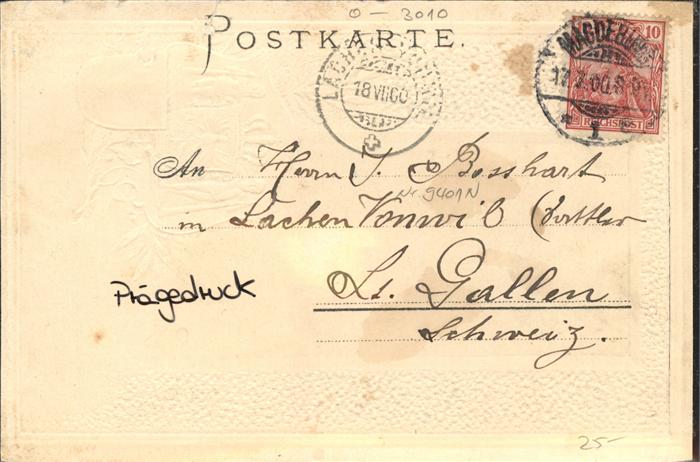 0 - 3010
POSTKARTE.
10
MAGDEBURG
REICHSPOST
1
LACHEN-VONWIL
18 VII 00
An Herrn J. Bosshart
Nr. 9401 N
in Lachen Vonwil
St. Gallen
Schweiz.
Prägedruck
25-